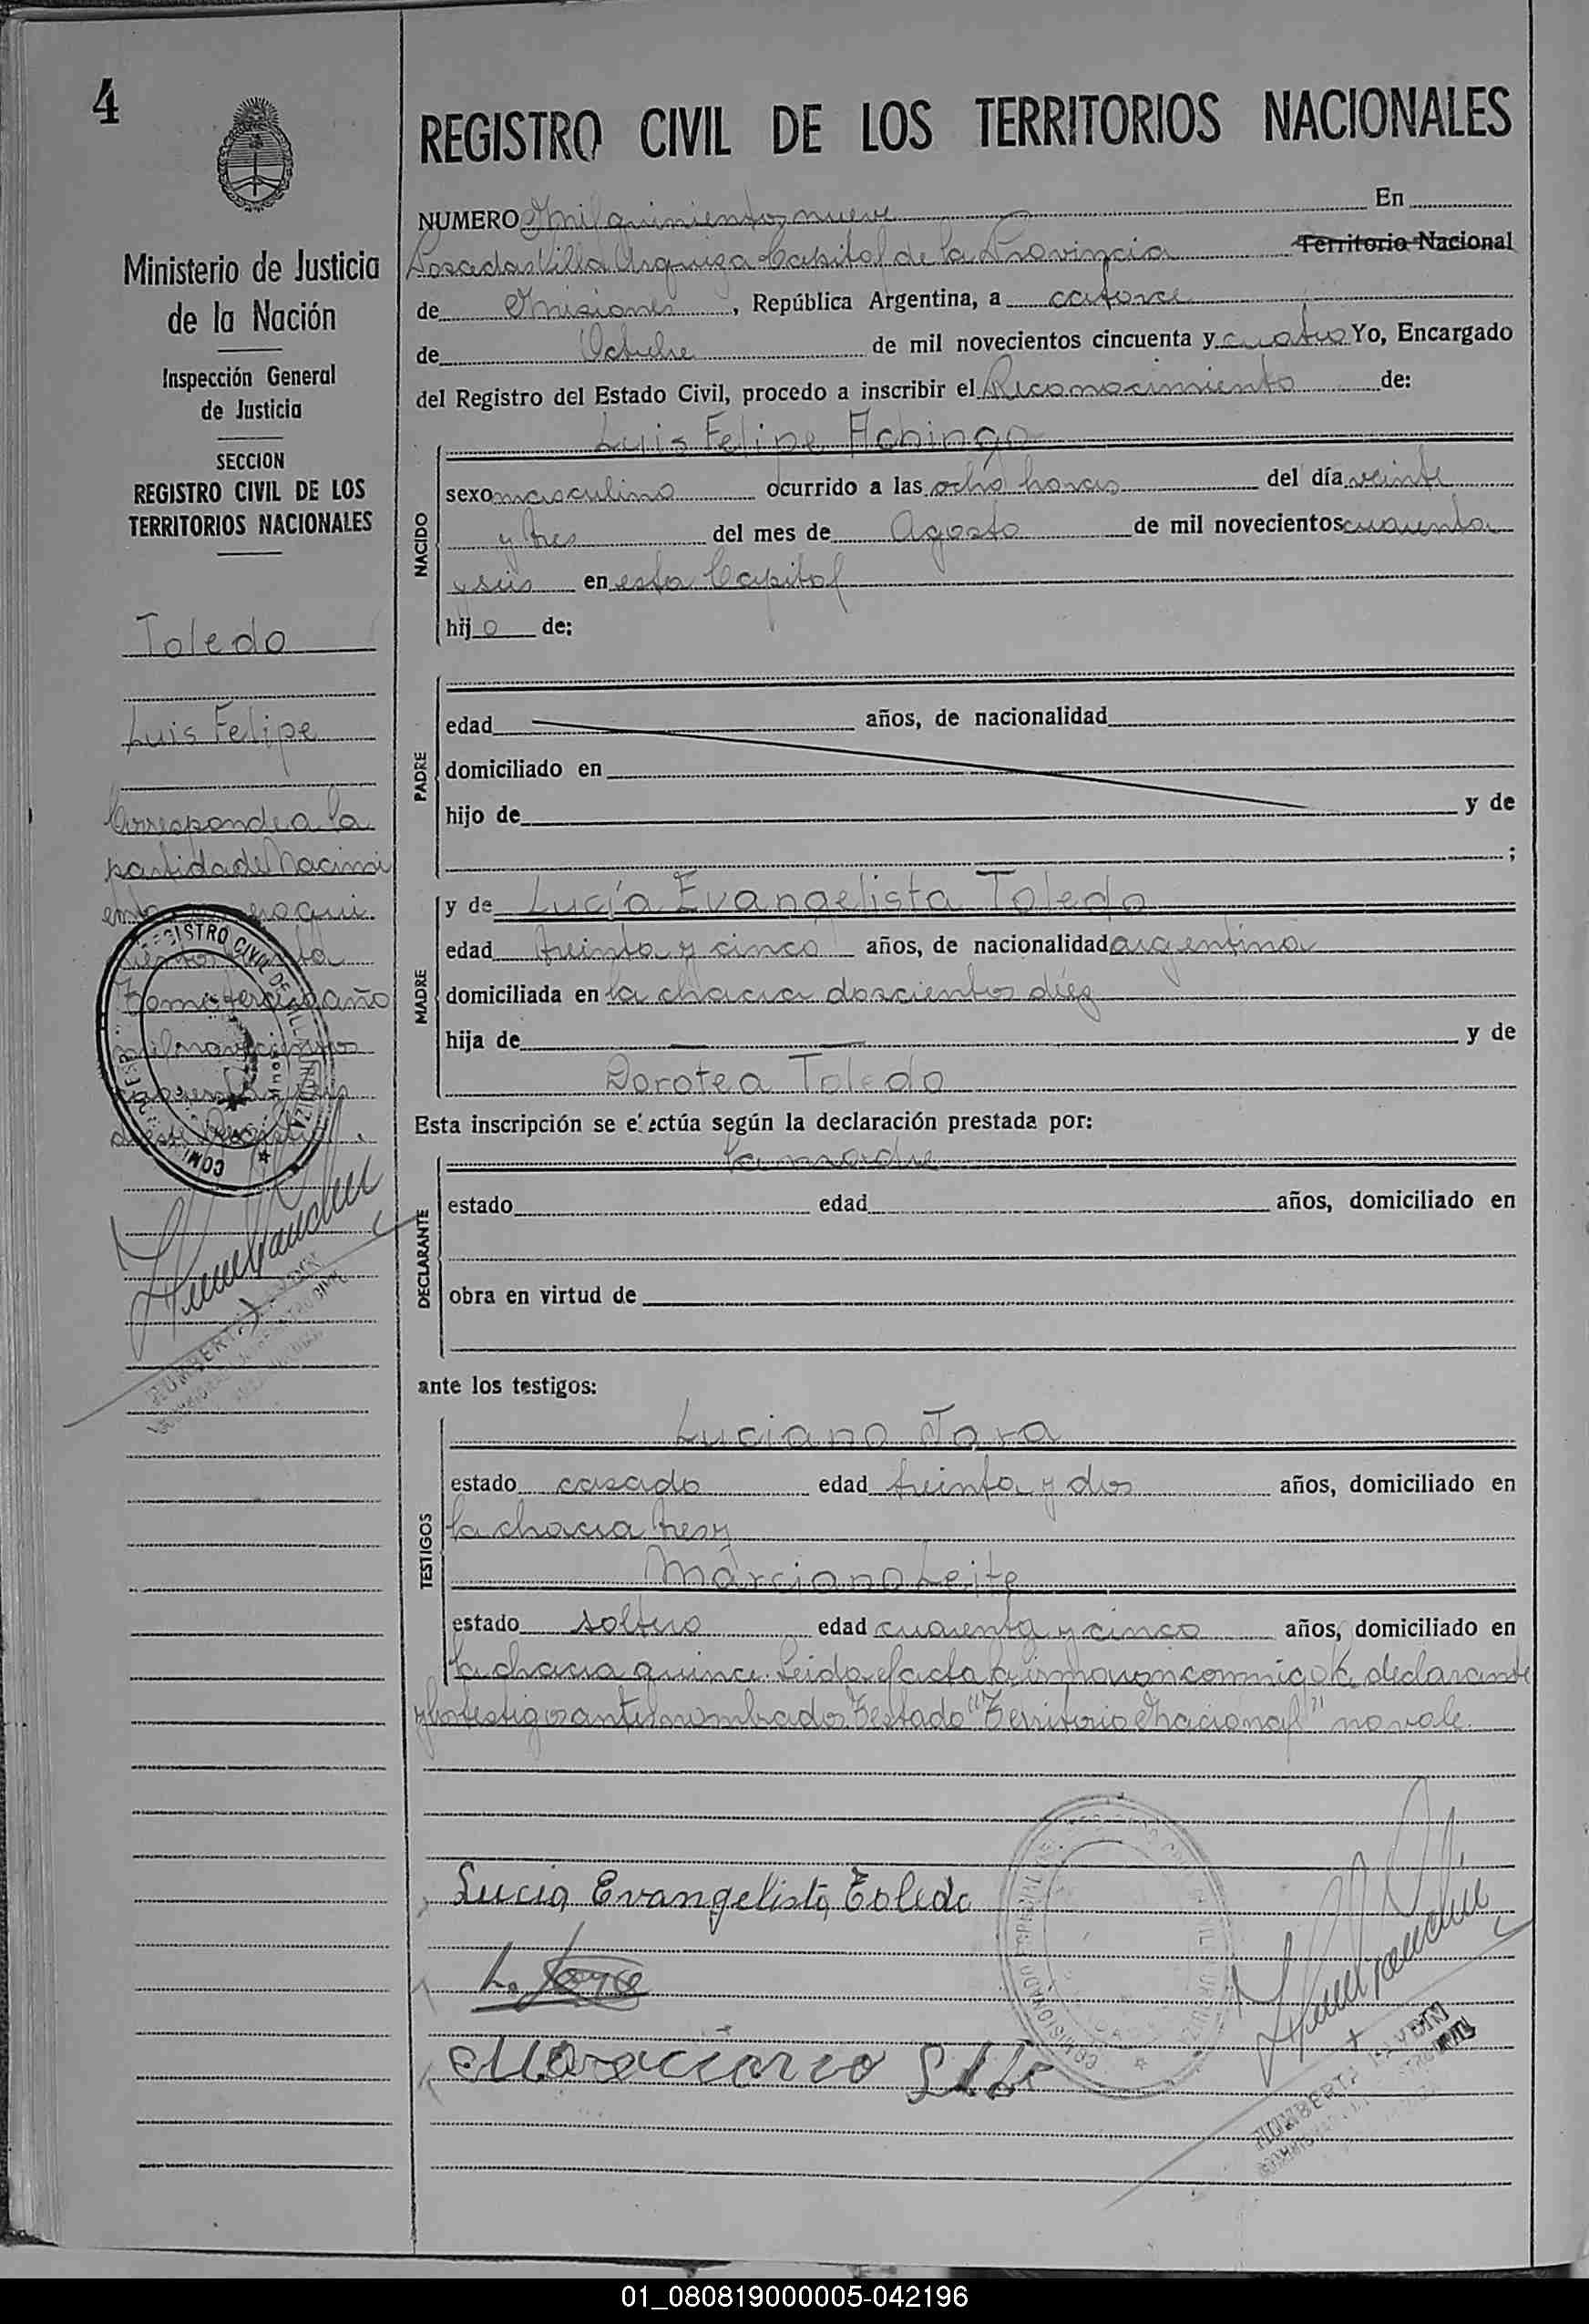 4
Ministerio de Justicia
de la Nación
Inspección General
de Justicia
SECCION
REGISTRO CIVIL DE LOS
TERRITORIOS NACIONALES
Toledo
Luis Felipe
Corresponde a la
partida de Nacimi
ento
Tomo tercero año
mil novecientos
cuarenta y seis
de este
REGISTRO CIVIL DE LOS TERRITORIOS NACIONALES
NUMERO Mil quinientos nueve En
Posadas Villa Urquiza Capital de la Provincia Territorio Nacional
de Misiones, República Argentina, a catorce
de Octubre de mil novecientos cincuenta y cuatro Yo, Encargado
del Registro del Estado Civil, procedo a inscribir el Reconocimiento de:
NACIDO
Luis Felipe Achinga
sexo masculino ocurrido a las ocho horas del día veinte
y tres del mes de Agosto de mil novecientos cuarenta
y seis en esta Capital
hijo de:
PADRE
edad años, de nacionalidad
domiciliado en
hijo de y de
;
MADRE
y de Lucía Evangelista Toledo
edad treinta y cinco años, de nacionalidad argentina
domiciliada en la chacra doscientos diéz
hija de — — y de
Dorotea Toledo
Esta inscripción se efectúa según la declaración prestada por:
DECLARANTE
la madre
estado edad años, domiciliado en
obra en virtud de
ante los testigos:
TESTIGOS
Luciano Jara
estado casado edad treinta y dos años, domiciliado en
la chacra tres y
Marciano Leite
estado soltero edad cuarenta y cinco años, domiciliado en
la chacra quince. Leida el acta la firmaron conmigo la declarante
y los testigos antes nombrados. Testado "Territorio Nacional" no vale.
Lucia Evangelista Toledo
L. Jara
Marciano
01_080819000005-042196